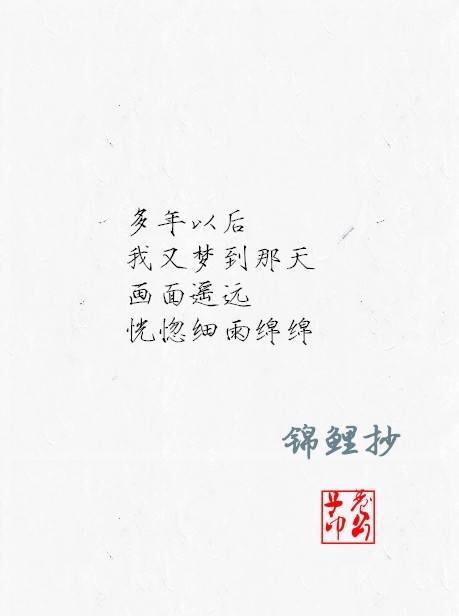 多年以后
我又梦到那天
画面遥远
恍惚细雨绵绵
锦鲤抄